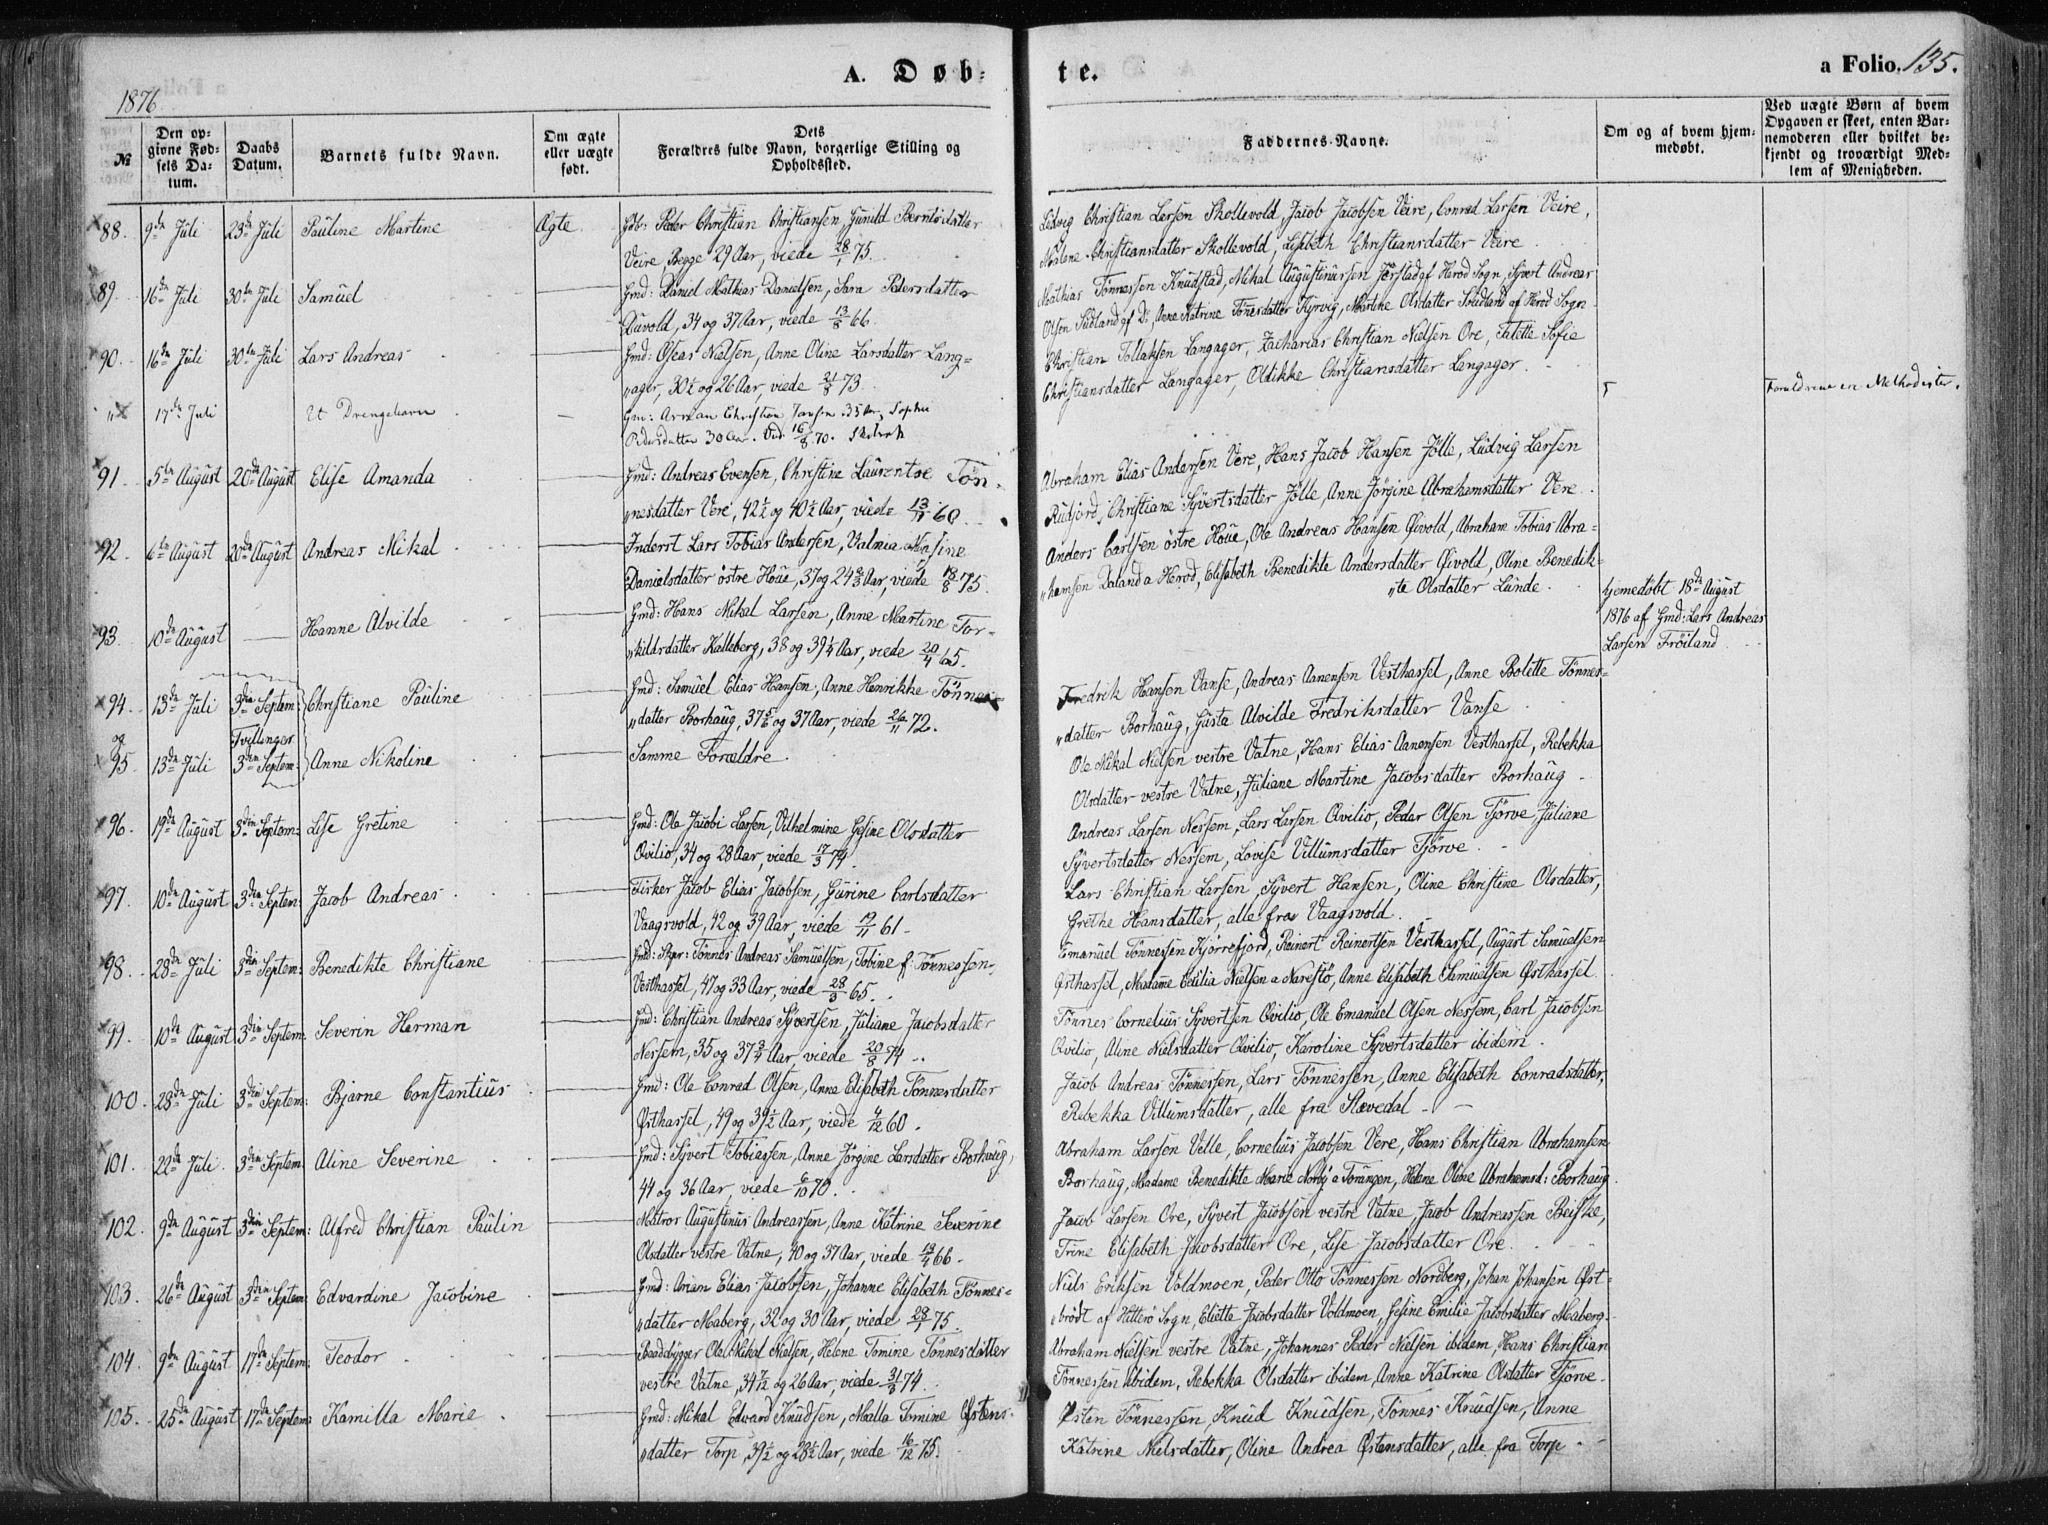 A. Døb-
te.
a Folio. 135.
1876
№
Den op-
givne Fød-
sels Da-
tum.
Daabs
Datum.
Barnets fulde Navn.
Om ægte
eller uægte
født.
Dets
Forældres fulde Navn, borgerlige Stilling og
Opholdssted.
Faddernes-Navne.
Om og af hvem hjem-
medøbt.
Ved uægte Børn af hvem
Opgaven er skeet, enten Bar-
nemoderen eller hvilket be-
kjendt og troværdigt Med-
lem af Menigheden.
88. 9de Juli 23de Juli Pauline Martine Ægte Peder Christian Christiansen, Gunild Berntsdatter
Veire Begge 29 Aar, viede 28/1 75.
Ludvig Christian Larsen Skollevold, Jacob Jacobsen Veire, Conrad Larsen Veire,
Malene Christiansdatter Skollevold, Lisabeth Christiansdatter Veire
89. 16de Juli 30te Juli Samuel Gmd: Daniel Mathias Danielsen, Sara Pedersdatter
Duvold, 34 og 37 Aar, viede 13/8 66.
Mathias Tønnessen Knudstad, Mikal Augustinussen Jørstad af Herod Sogn, Syvert Andreas
Olsen Sudland af Do, Anne Katrine Tønesdatter Kjørvig, Martine Olsdatter Sudland af Herod Sogn
90. 16de Juli 30te Juli Lars Andreas Gmd: Oseas Nielsen, Anne Oline Larsdatter Lang-
„ager, 30½ og 26 Aar, viede 21/8 73.
Christian Tollaksen Langager, Zacharias Christian Nielsen Ore, Talette Sofie
Christiansdatter Langager, Oldikke Christiansdatter Langager.
„ 17de Juli Et Drengebarn Gm: Arnian Christian Jansen 35 Aar, Sophie
Pedersdatter 30 Aar. Vied 16/8 70.
Forældrene er Methodister.
91. 5te August 20de August Elise Amanda Gmd: Andreas Evensen, Christine Laurentse Tøn-
„nesdatter Vere, 42½ og 40½ Aar, viede 13/11 60.
Abraham Elias Andersen Vere, Hans Jacob Hansen Jølle, Ludvig Larsen
Rudjord, Christiane Syvertsdatter Jølle, Anne Jørgine Abrahamsdatter Vere.
92. 6te August 20de August Andreas Mikal Inderst Lars Tobias Andersen, Valmia Masine
Danielsdatter østre Houe, 37 og 24 2/3 Aar, viede 18/8 75.
Anders Carlsen østre Houe, Ole Andreas Hansen Øivold, Abraham Tobias Abra-
„hamsen Daland a Herod, Elisabeth Benedikte Andersdatter Øivold, Oline Benedik-
„te Olsdatter Lunde.
93. 10de August Hanne Alvilde Gmd: Hans Mikal Larsen, Anne Martine Tor-
„kildsdatter Kalleberg, 38 og 39¼ Aar, viede 20/4 65.
hjemedøbt 18de August
1876 af Gmd: Lars Andreas
Larsen Frøiland
94. 13de Juli 3die Septem: Christiane Pauline Gmd: Samuel Elias Hansen, Anne Henrikke Tønnes-
„datter Borhaug, 37 5/6 og 37 Aar, viede 26/11 72.
Fredrik Hansen Vanse, Andreas Aanensen Vesthassel, Anne Bolette Tønnes-
„datter Borhaug, Gusta Alvilde Fredriksdatter Vanse
og Tvillinger
95. 13de Juli 3die Septem: Anne Nikoline Samme Forældre.
Ole Mikal Nielsen vestre Vatne, Hans Elias Aanensen Vesthassel, Rebekka
Olsdatter vestre Vatne, Juliane Martine Jacobsdatter Borhaug
96. 19de August 3die Septem: Lise Gretine Gmd: Ole Jacobi Larsen, Vilhelmine Gesine Olsdatter
Qvilio, 34 og 28 Aar, viede 17/3 74.
Andreas Larsen Nessem, Lars Larsen Qvilio, Peder Olsen Tjørve, Juliane
Syvertsdatter Nessem, Lovise Villumsdatter Tjørve.
97. 10de August 3die Septem: Jacob Andreas Fisker Jacob Elias Jacobsen, Gurine Carlsdatter
Vaagsvold, 42 og 39 Aar, viede 19/11 61.
Lars Christian Larsen, Syvert Hansen, Oline Christine Olsdatter,
Grethe Hansdatter, alle fra Vaagsvold.
98. 28de Juli 3die Septem: Benedikte Christiane Gmd: Skpr: Tønnes Andreas Samuelsen, Tobine f: Tønnessen
Vesthassel, 47 og 33 Aar, viede 28/3 65.
Emanuel Tønnessen Kjørrefjord, Reinert Reinertsen Vesthassel, August Samuelsen
Østhassel, Madame Cecilia Nielsen a Narestø, Anne Elisabeth Samuelsen Østhassel.
99. 10de August 3die Septem: Severin Herman Gmd: Christian Andreas Syvertsen, Juliane Jacobsdatter
Nessem, 35 og 37¾ Aar, viede 20/8 74.
Tønnes Cornelius Syvertsen Qvilio, Ole Emanuel Olsen Nessem, Carl Jacobsen
Qvilio, Aline Nielsdatter Qvilio, Karoline Syvertsdatter ibidem.
100. 28de Juli 3die Septem: Bjarne Constantius Gmd: Ole Conrad Olsen, Anne Elisabeth Tønnesdatter
Østhassel, 49 og 39½ Aar, viede 4/12 60.
Jacob Andreas Tønnessen, Lars Tønnessen, Anne Elisabeth Conradsdatter,
Rebekka Villumsdatter, alle fra Rævedal
101. 22de Juli 3die Septem: Aline Severine Gmd: Syvert Tobiassen, Anne Jørgine Larsdatter Borhaug,
44 og 36 Aar, viede 6/10 70.
Abraham Larsen Velle, Cornelius Jacobsen Vere, Hans Christian Abrahamsen
Borhaug, Madame Benedikte Marie Norby a Torangen, Helene Oline Abrahamsd: Borhaug.
102. 9de August 3die Septem: Alfred Christian Paulin Matros Augustinus Andreassen, Anne Katrine Severine
Olsdatter vestre Vatne, 40 og 37 Aar, viede 13/4 66.
Jacob Larsen Ore, Syvert Jacobsen vestre Vatne, Jacob Andreassen Beiske,
Trine Elisabeth Jacobsdatter Ore, Lise Jacobsdatter Ore.
103. 26de August 3die Septem: Edvardine Jacobine Gmd: Arian Elias Jacobsen, Johanne Elisabeth Tønnes-
„datter Maberg, 32 og 30 Aar, viede 28/1 75.
Niels Eriksen Voldmoen, Peder Otto Tønnessen Nordberg, Johan Johansen Øst-
„brødt af Hitterø Sogn, Eliette Jacobsdatter Voldmoen, Gesine Emilie Jacobsdatter Maberg.
104. 9de August 17de Septem: Teodor Baadbygger Ole Mikal Nielsen, Helene Tomine Tønnesdatter
vestre Vatne, 34 7/12 og 26 Aar, viede 31/3 74.
Abraham Nielsen vestre Vatne, Johannes Peder Nielsen ibidem, Hans Christian
Tønnessen ibidem, Rebekka Olsdatter ibidem, Anne Katrine Olsdatter Tjørve.
105. 25de August 17de Septem: Kamilla Marie Gmd: Mikal Edvard Knudsen, Malla Tomine Østens-
„datter Torp, 39½ og 28½ Aar, viede 16/12 75.
Østen Tønnessen, Knud Knudsen, Tønnes Knudsen, Anne
Katrine Nielsdatter, Oline Andrea Østensdatter, alle fra Torp